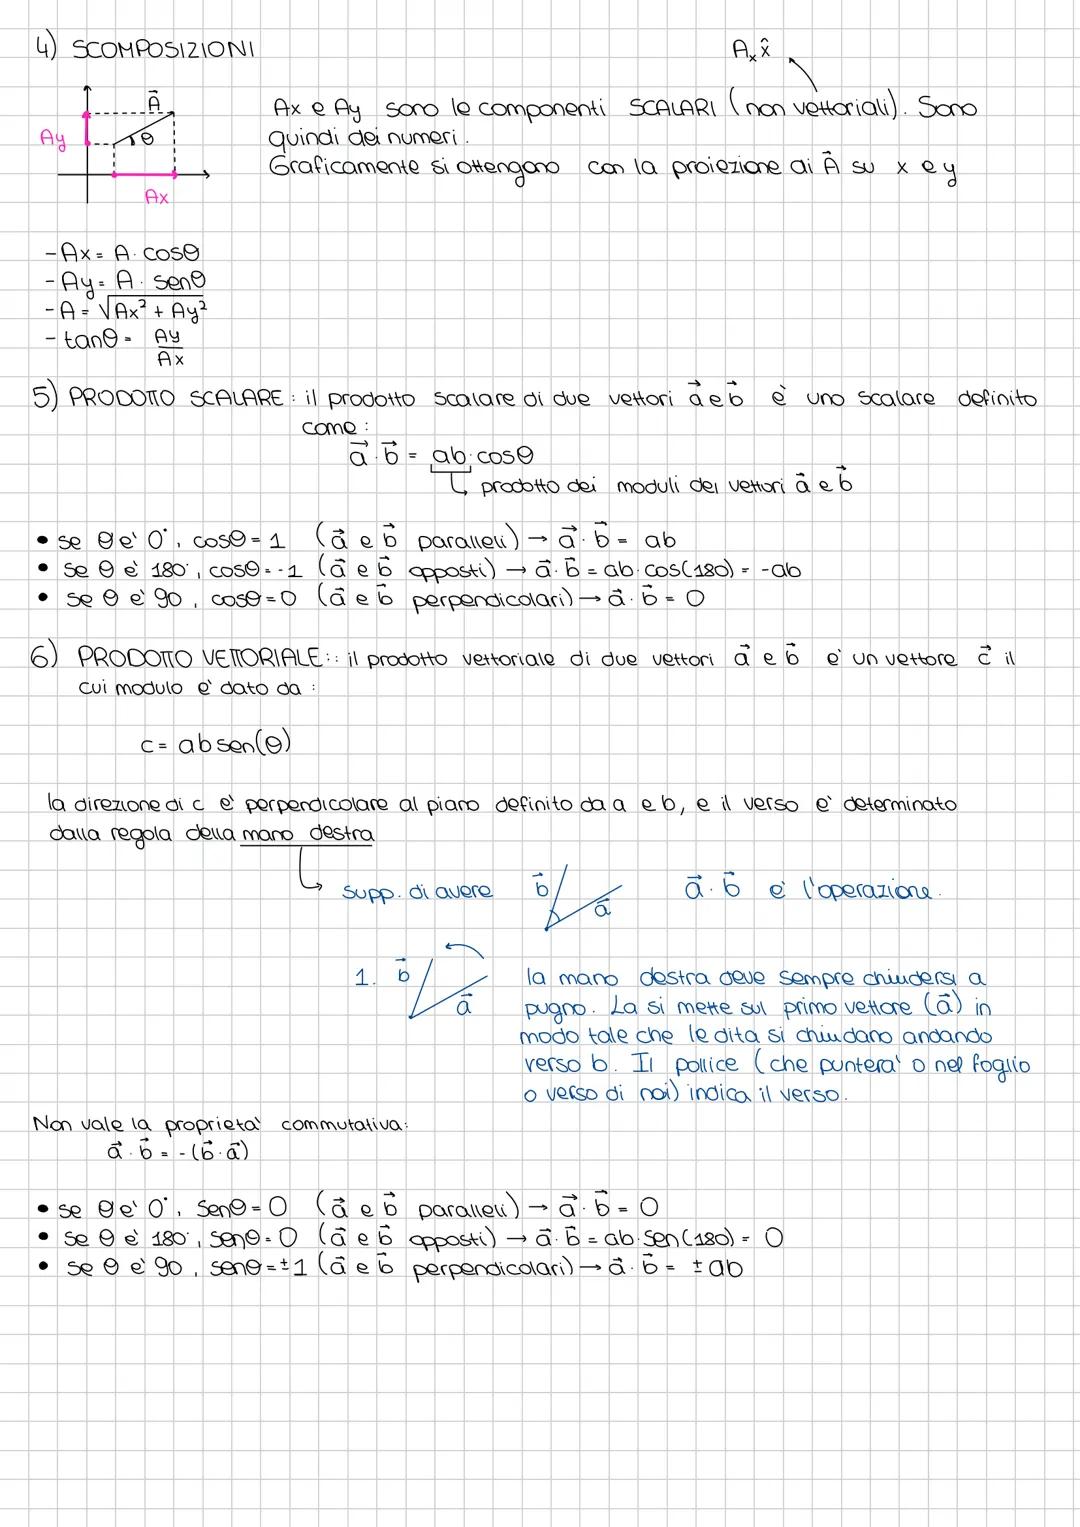 4) SCOMPOSIZIONI
Aₓ x̂
A⃗
Ay
θ
Ax
Ax e Ay sono le componenti SCALARI (non vettoriali). Sono
quindi dei numeri.
Graficamente si ottengono con la proiezione di A⃗ su x e y
- Ax = A · cosθ
- Ay = A · senθ
- A = √(Ax² + Ay²)
- tanθ = Ay / Ax
5) PRODOTTO SCALARE : il prodotto scalare di due vettori a⃗ e b⃗ è uno scalare definito
come :
a⃗ · b⃗ = ab · cosθ
↳ prodotto dei moduli dei vettori a⃗ e b⃗
• se θ e' 0°, cosθ = 1 (a⃗ e b⃗ paralleli) → a⃗ · b⃗ = ab
• se θ e' 180°, cosθ = -1 (a⃗ e b⃗ opposti) → a⃗ · b⃗ = ab · cos(180) = -ab
• se θ e' 90, cosθ = 0 (a⃗ e b⃗ perpendicolari) → a⃗ · b⃗ = 0
6) PRODOTTO VETTORIALE:: il prodotto vettoriale di due vettori a⃗ e b⃗ e' un vettore c⃗ il
cui modulo e' dato da :
c = ab sen(θ)
la direzione di c e' perpendicolare al piano definito da a e b, e il verso e' determinato
dalla regola della mano destra
↳ supp. di avere b⃗ a⃗ a⃗ · b⃗ e' l'operazione.
1. b⃗ a⃗
la mano destra deve sempre chiudersi a
pugno. La si mette sul primo vettore (a⃗) in
modo tale che le dita si chiudano andando
verso b. Il pollice (che puntera' o nel foglio
o verso di noi) indica il verso.
Non vale la proprieta' commutativa:
a⃗ · b⃗ = - (b⃗ · a⃗)
• se θ e' 0°, senθ = 0 (a⃗ e b⃗ paralleli) → a⃗ · b⃗ = 0
• se θ e' 180°, senθ = 0 (a⃗ e b⃗ opposti) → a⃗ · b⃗ = ab · sen(180) = 0
• se θ e' 90, senθ = ±1 (a⃗ e b⃗ perpendicolari) → a⃗ · b⃗ = ±ab